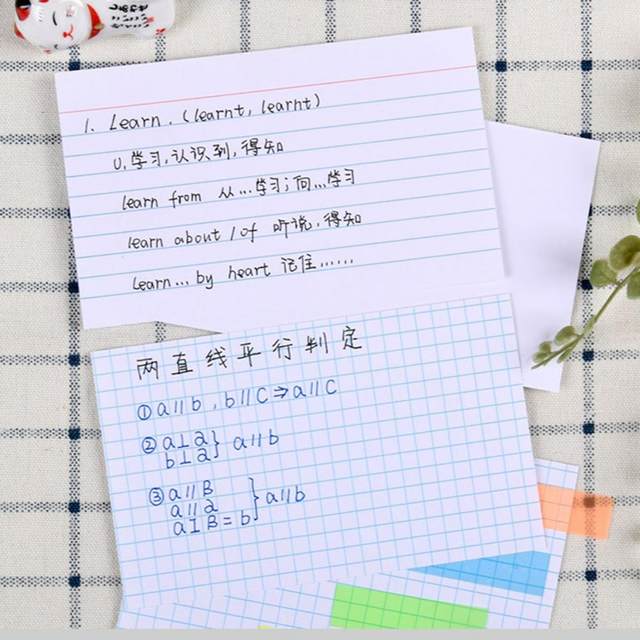 1. Learn. (learnt, learnt)
v. 学习,认识到,得知
learn from 从...学习;向...学习
learn about / of 听说,得知
learn... by heart 记住......
两直线平行判定
① a∥b , b∥C ⇒ a∥C
② a⊥a } a∥b
b⊥a
③ a∥B } a∥b
a∥a
a⊥B = b